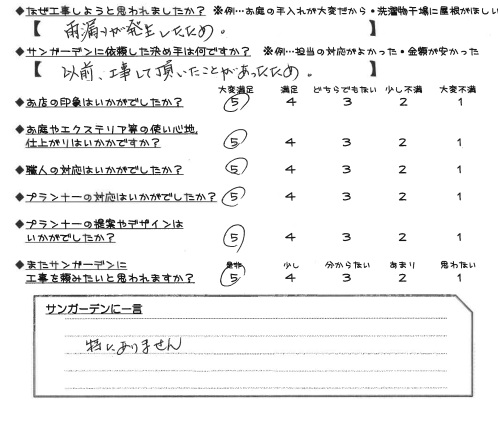 ◆なぜ工事しようと思われましたか？ ※例…お庭の手入れが大変だから・洗濯物干場に屋根がほしい
【 雨漏りが発生したため。 】
◆サンガーデンに依頼した決め手は何ですか？ ※例…担当の対応がよかった・金額が安かった
【 以前、工事して頂いたことがあったため。 】
大変満足 満足 どちらでもない 少し不満 大変不満
◆お店の印象はいかがでしたか？ 5 4 3 2 1
◆お庭やエクステリア等の使い心地、
仕上がりはいかかですか？ 5 4 3 2 1
◆職人の対応はいかがでしたか？ 5 4 3 2 1
◆プランナーの対応はいかがでしたか？ 5 4 3 2 1
◆プランナーの提案やデザインは
いかがでしたか？ 5 4 3 2 1
◆またサンガーデンに 是非 少し 分からない あまり 思わない
工事を頼みたいと思われますか？ 5 4 3 2 1
サンガーデンに一言
特にありません